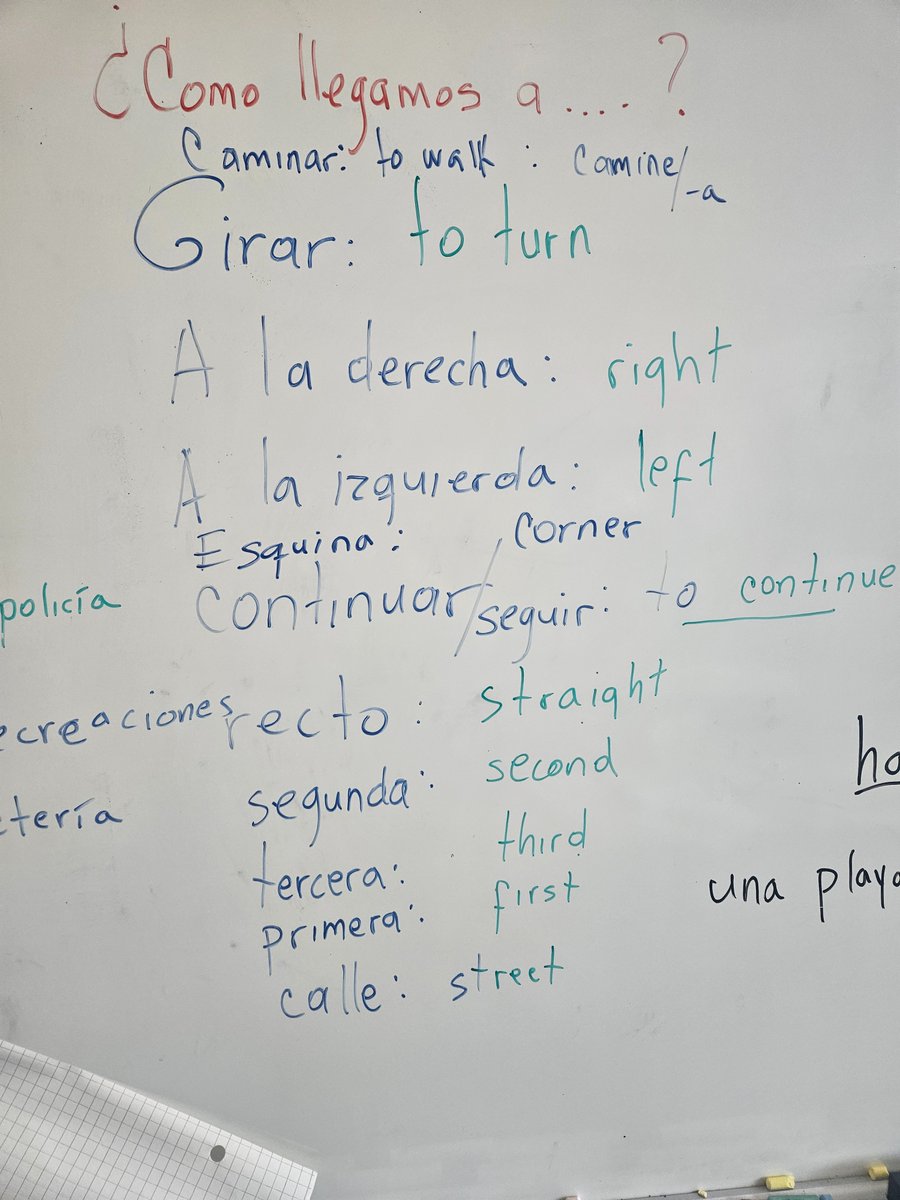 ¿Como llegamos a .... ?
Caminar: to walk : camine/-a
Girar: to turn
A la derecha: right
A la izquierda: left
Esquina: corner
policía
continuar/seguir: to continue
ecreaciones
recto: straight
segunda: second
tería
tercera: third
primera: first
una playa
calle: street